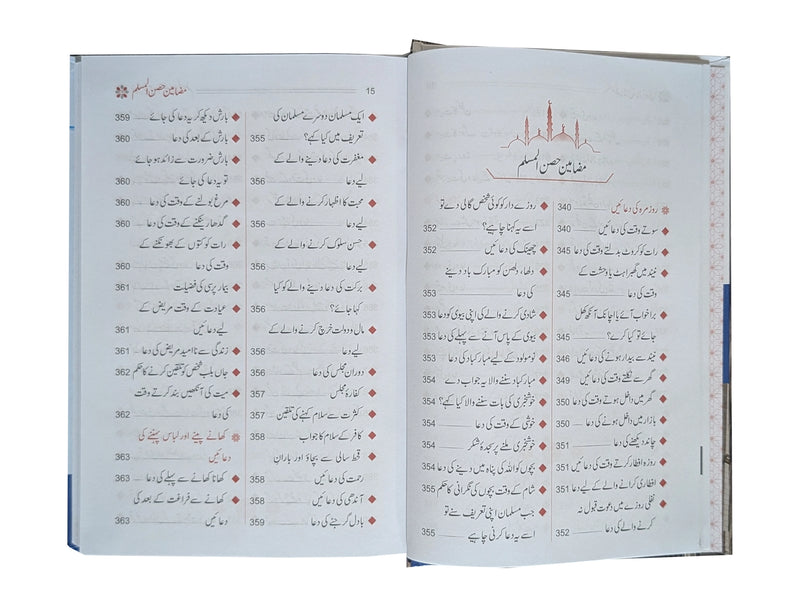 مضامین حصن المسلم
روزمرہ کی دعائیں 340
سوتے وقت کی دعائیں 340
رات کو کروٹ بدلتے وقت کی دعا 345
نیند میں گھبراہٹ یا وحشت کے
وقت کی دعا 345
برا خواب آئے یا اچانک آنکھ کھل
جائے تو کیا کرے؟ 345
نیند سے بیدار ہونے کی دعائیں 346
گھر سے نکلتے وقت کی دعائیں 349
گھر میں داخل ہوتے وقت کی دعا 350
بازار میں داخل ہونے کی دعا 350
چاند دیکھنے کی دعا 351
روزہ افطار کرتے وقت کی دعائیں 351
افطاری کرانے والے کے لیے دعا 351
نفلی روزے میں دعوت قبول نہ
کرنے والے کی دعا 352
روزے دار کو کوئی شخص گالی دے تو
اسے یہ کہنا چاہیے؟ 352
چھینک کی دعائیں 352
دلھا، دلھن کو مبارک باد دینے
کی دعا 353
شادی کرنے والے کی اپنی بیوی کو دعا 353
بیوی کے پاس آنے سے پہلے کی دعا 353
نومولود کے لیے مبارکباد کی دعا 353
مبارکباد سننے والا یہ جواب دے 354
خوشخبری کی بات سننے والا کیا کہے؟ 354
خوشی کے وقت کی دعا 354
خوشخبری ملنے پر سجدۂ شکر 354
بچوں کو اللہ کی پناہ میں دینے کی دعا 354
شام کے وقت بچوں کی نگرانی کا حکم 355
جب مسلمان اپنی تعریف سنے تو
اسے یہ دعا کرنی چاہیے 355
مضامین حصن المسلم 15
ایک مسلمان دوسرے مسلمان کی
تعریف میں کیا کہے؟ 355
مغفرت کی دعا دینے والے کے
لیے دعا 356
محبت کا اظہار کرنے والے کے
لیے دعا 356
حسن سلوک کرنے والے کے
لیے دعا 356
برکت کی دعا دینے والے کو کیا
کہا جائے؟ 356
مال و دولت خرچ کرنے والے کے
لیے دعا 356
دوران مجلس کی دعا 356
کفارۂ مجلس 357
کثرت سے سلام کہنے کی تلقین 357
کافر کے سلام کا جواب 358
قحط سالی سے بچاؤ اور باران
رحمت کی دعائیں 358
آندھی کی دعائیں 358
بادل گرجنے کی دعا 359
بارش دیکھ کر یہ دعا کی جائے 359
بارش کے بعد کی دعا 360
بارش ضرورت سے زائد ہو جائے
تو یہ دعا کی جائے 360
مرغ بولنے کے وقت کی دعا 360
گدھا رینکنے کے وقت کی دعا 360
رات کو کتوں کے بھونکنے کے
وقت کی دعا 360
بیمار پرسی کی فضیلت 361
عیادت کے وقت مریض کے
لیے دعائیں 361
زندگی سے ناامید مریض کی دعا 361
جاں بلب شخص کو تلقین کرنے کا حکم 362
میت کی آنکھیں بند کرتے وقت
کی دعا 362
کھانے پینے اور لباس پہننے کی
دعائیں 363
کھانا کھانے سے پہلے کی دعا 363
کھانے سے فراغت کے بعد کی
دعائیں 363